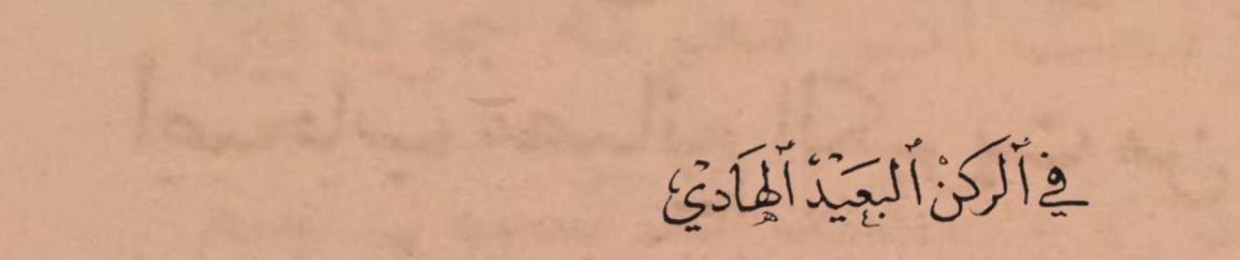 في ٱلركنْ ٱلبعَيْدْ ٱلهَاديْ